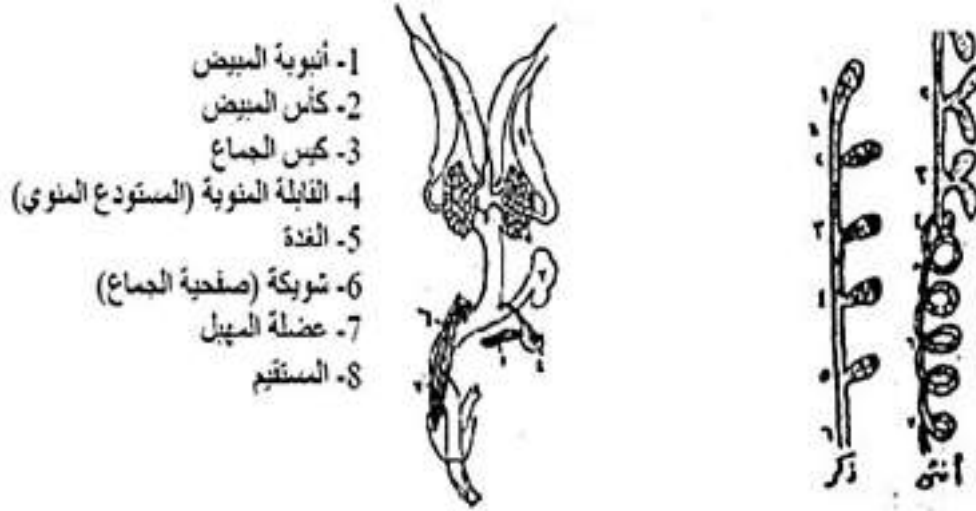 1- أنبوبة المبيض
2- كأس المبيض
3- كيس الجماع
4- القابلة المنوية (المستودع المنوي)
5- الغدة
6- شويكة (صفحية الجماع)
7- عضلة المهبل
8- المستقيم
ذكر
أنثى